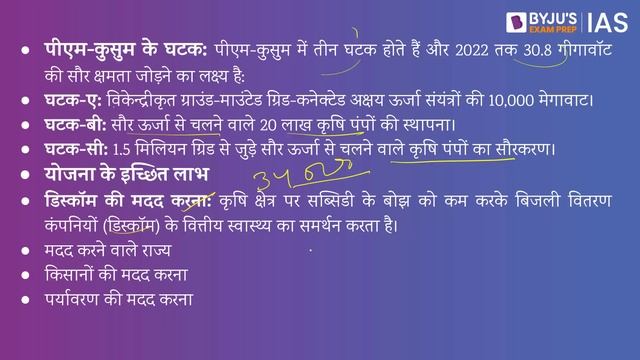 BYJU'S
EXAM PREP
IAS
• पीएम-कुसुम के घटक: पीएम-कुसुम में तीन घटक होते हैं और 2022 तक 30.8 गीगावॉट
की सौर क्षमता जोड़ने का लक्ष्य है:
• घटक-ए: विकेन्द्रीकृत ग्राउंड-माउंटेड ग्रिड-कनेक्टेड अक्षय ऊर्जा संयंत्रों की 10,000 मेगावाट।
• घटक-बी: सौर ऊर्जा से चलने वाले 20 लाख कृषि पंपों की स्थापना।
• घटक-सी: 1.5 मिलियन ग्रिड से जुड़े सौर ऊर्जा से चलने वाले कृषि पंपों का सौरकरण।
• योजना के इच्छित लाभ
• डिस्कॉम की मदद करना: कृषि क्षेत्र पर सब्सिडी के बोझ को कम करके बिजली वितरण
कंपनियों (डिस्कॉम) के वित्तीय स्वास्थ्य का समर्थन करता है।
• मदद करने वाले राज्य
• किसानों की मदद करना
• पर्यावरण की मदद करना